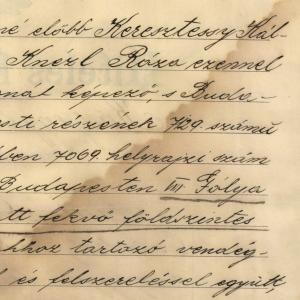 né előbb Keresztessy Kál-
Knézl Róza ezennel
onát képező, s Buda-
esti részének 729. számú
ben 7069. helyrajzi szám
Budapesten III Gólya
tt fekvő földszintes
hhoz tartozó vendég-
és felszereléssel együtt,